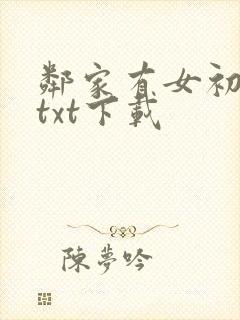 鄰家有女初
txt下載
陳夢吟